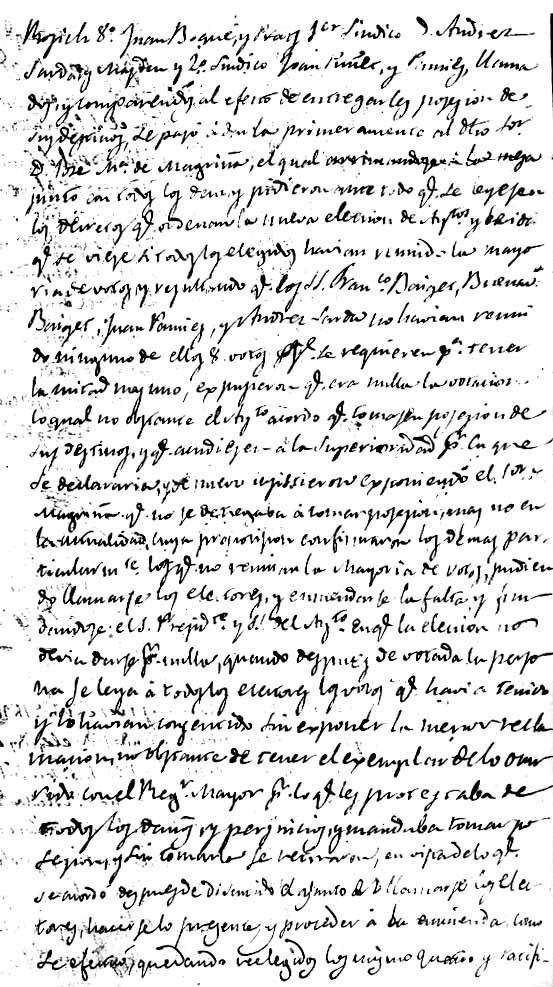 Rosich 8º Juan Boqué, y Prats 1er Sindico D. Andres
Sardá y Magdén y 2º Sindico Joan Fünes, y Pamies, llama
dos, y compareridos al efecto de entregarles posesion de
sus destinos, se pasó á darla primeramente al dho Sor
D. Jose Ma. de Magriñá, el qual arrimandose á la mesa
junto con todos los demas pidieron ante todo qe. se leyesen
los decretos qe. ordenan la nueva eleccion de Aytos y
qe. se viese si todos los elegidos havian reunido la mayo
ria de votos, y resultando qe. los SS. Franco Baiges, Buenava
Baiges, Juan Pamies, y Andres Sardá no havian reuni
do ninguno de ellos 8 votos qe. se requieren pa. tener
la mitad mas uno, expusieron qe. era nulla la votacion
lo qual no obstante el Ayto acordó qe. tomasen posesion de
sus destinos, y qe. acudiesen á la Superioridad pa. la que
se declararia, y de nuevo insistieron exponiendo el Sor
Magriñá qe. no se denegaba á tomar posesion, mas no en
la actualidad, cuya proposicion confirmaron los demas par
ticularmte. los qe. no reunian la Mayoria de votos, pudien
do llamarse los electores, y enmendarse la falta, y fun
dandose el S. Presidte y SS. del Ayto. en qe. la eleccion no
devia darse pr. nulla, quando despues de votada la perso
na se leya á todos los electores los votos qe. havia tenido
y lo havian consentido sin exponer la menor recla
macion, no obstante de tener el exemplar de lo ocur
rido con el Regr. Mayor pr. lo qe. les protestaba de
todos los daños, y perjuicios, y mandaba tomar po
sesion, y sin tomarla se retiraron, en vista de lo qe.
se acordó despues de discutido el asunto de llamarse los Elec
tores, hacerselo presente, y proceder á la enmienda como
se efectuó, quedando reelegidos los mismo quatro y ratifi-